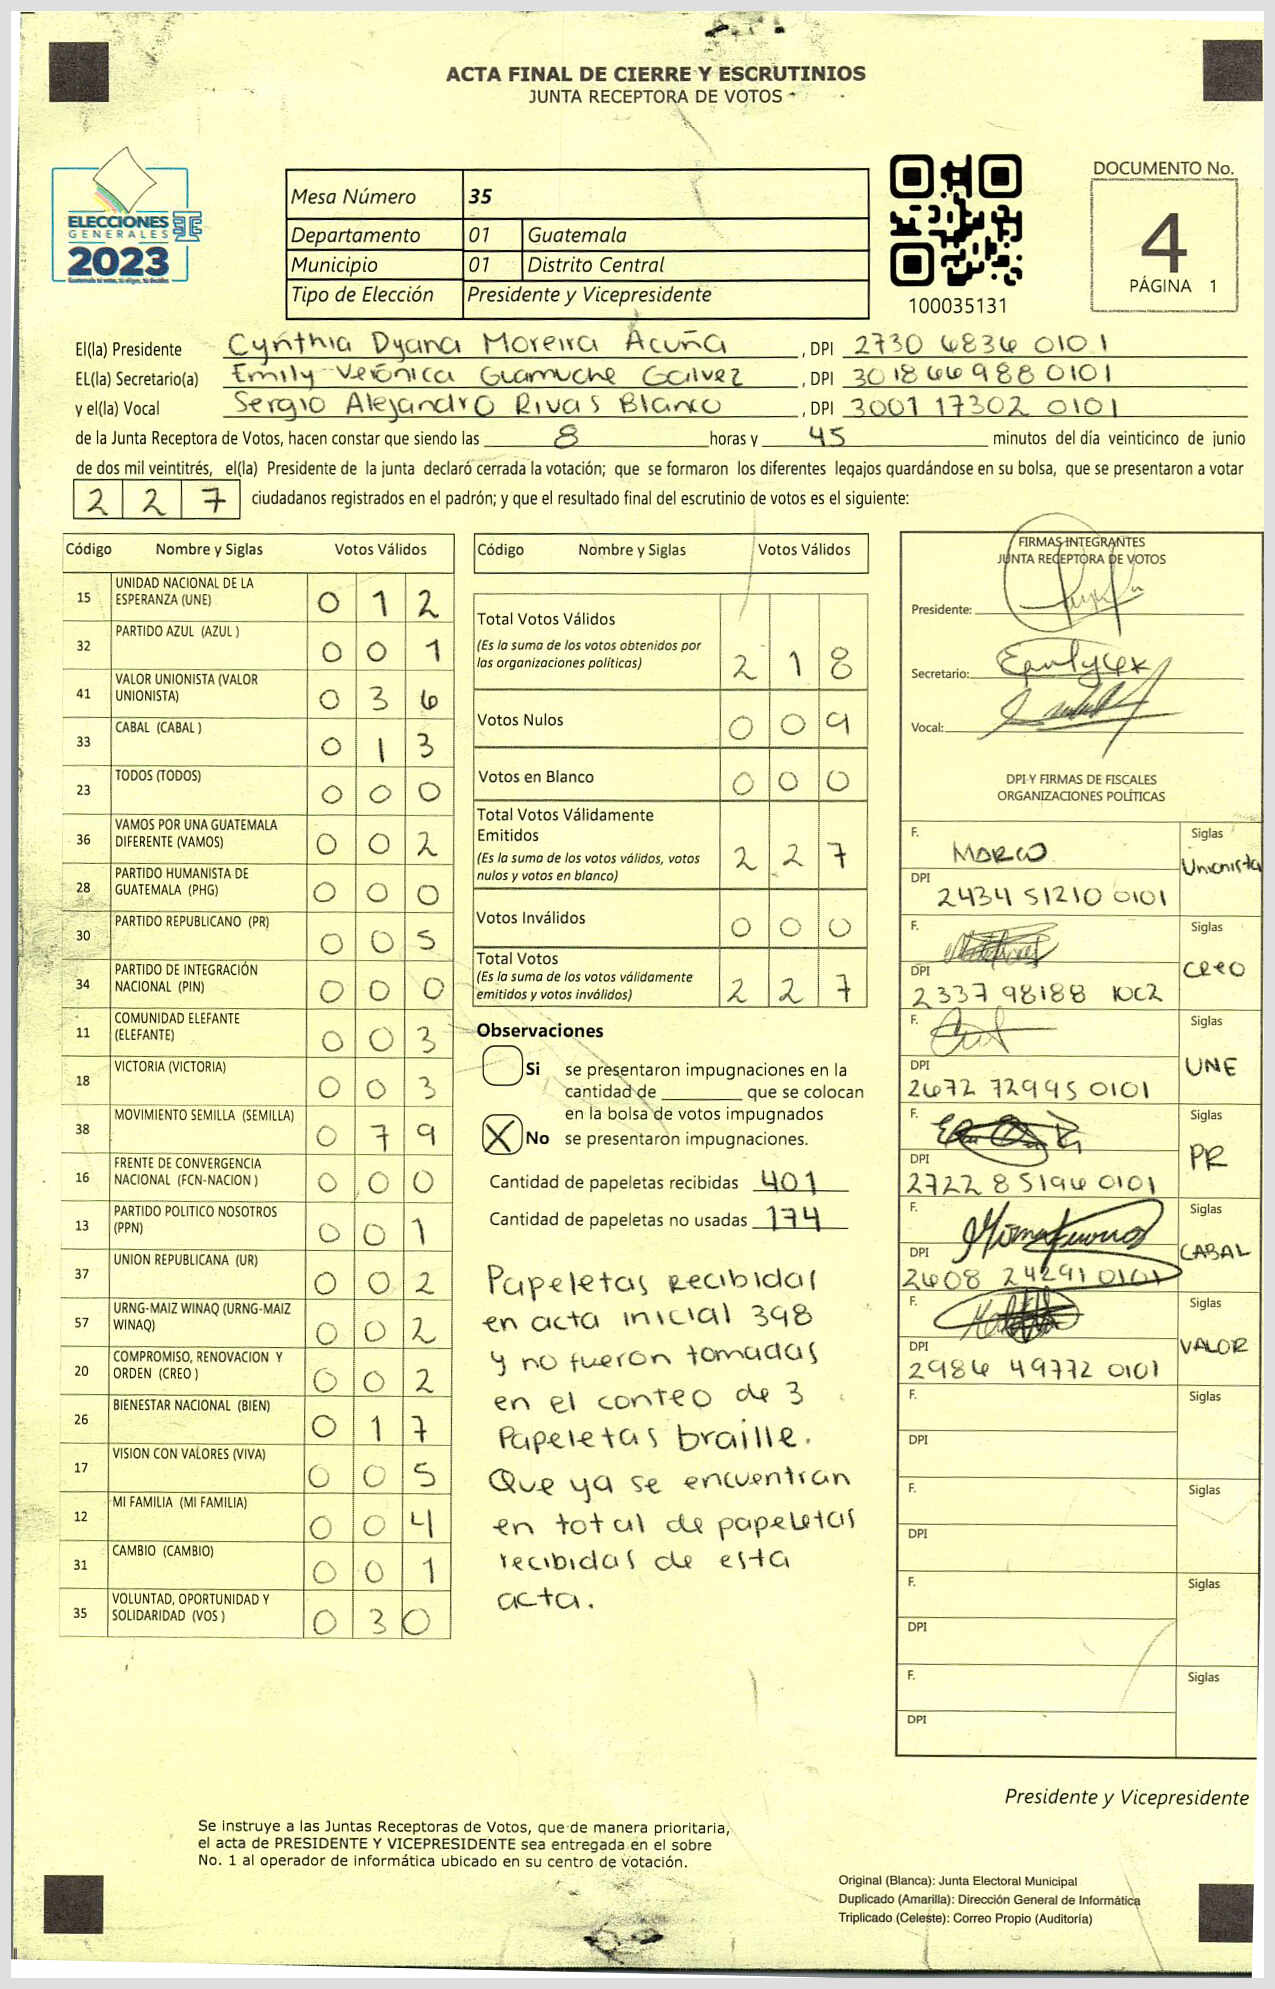 ACTA FINAL DE CIERRE Y ESCRUTINIOS
JUNTA RECEPTORA DE VOTOS
ELECCIONES
GENERALES
2023
Mesa Número 35
Departamento 01 Guatemala
Municipio 01 Distrito Central
Tipo de Elección Presidente y Vicepresidente
100035131
DOCUMENTO No.
4
PÁGINA 1
El(la) Presidente Cynthia Dyana Moreira Acuña, DPI 2730 6836 0101
EL(la) Secretario(a) Emily Verónica Guamuche Galvez, DPI 3018669880101
y el(la) Vocal Sergio Alejandro Rivas Blanco, DPI 3001 17302 0101
de la Junta Receptora de Votos, hacen constar que siendo las 8 horas y 45 minutos del día veinticinco de junio
de dos mil veintitrés, el(la) Presidente de la junta declaró cerrada la votación; que se formaron los diferentes legajos quardándose en su bolsa, que se presentaron a votar
2 2 7 ciudadanos registrados en el padrón; y que el resultado final del escrutinio de votos es el siguiente:
Código Nombre y Siglas Votos Válidos
15 UNIDAD NACIONAL DE LA
ESPERANZA (UNE) 0 1 2
32 PARTIDO AZUL (AZUL ) 0 0 1
41 VALOR UNIONISTA (VALOR
UNIONISTA) 0 3 6
33 CABAL (CABAL ) 0 1 3
23 TODOS (TODOS) 0 0 0
36 VAMOS POR UNA GUATEMALA
DIFERENTE (VAMOS) 0 0 2
28 PARTIDO HUMANISTA DE
GUATEMALA (PHG) 0 0 0
30 PARTIDO REPUBLICANO (PR) 0 0 5
34 PARTIDO DE INTEGRACIÓN
NACIONAL (PIN) 0 0 0
11 COMUNIDAD ELEFANTE
(ELEFANTE) 0 0 3
18 VICTORIA (VICTORIA) 0 0 3
38 MOVIMIENTO SEMILLA (SEMILLA) 0 7 9
16 FRENTE DE CONVERGENCIA
NACIONAL (FCN-NACION ) 0 0 0
13 PARTIDO POLITICO NOSOTROS
(PPN) 0 0 1
37 UNION REPUBLICANA (UR) 0 0 2
57 URNG-MAIZ WINAQ (URNG-MAIZ
WINAQ) 0 0 2
20 COMPROMISO, RENOVACION Y
ORDEN (CREO ) 0 0 2
26 BIENESTAR NACIONAL (BIEN) 0 1 7
17 VISION CON VALORES (VIVA) 0 0 5
12 MI FAMILIA (MI FAMILIA) 0 0 4
31 CAMBIO (CAMBIO) 0 0 1
35 VOLUNTAD, OPORTUNIDAD Y
SOLIDARIDAD (VOS ) 0 3 0
Código Nombre y Siglas Votos Válidos
Total Votos Válidos
(Es la suma de los votos obtenidos por
las organizaciones políticas) 2 1 8
Votos Nulos 0 0 9
Votos en Blanco 0 0 0
Total Votos Válidamente
Emitidos
(Es la suma de los votos válidos, votos
nulos y votos en blanco) 2 2 7
Votos Inválidos 0 0 0
Total Votos
(Es la suma de los votos válidamente
emitidos y votos inválidos) 2 2 7
Observaciones
Si se presentaron impugnaciones en la
cantidad de ________ que se colocan
en la bolsa de votos impugnados
X No se presentaron impugnaciones.
Cantidad de papeletas recibidas 401
Cantidad de papeletas no usadas 174
Papeletas recibidas
en acta inicial 398
y no fueron tomadas
en el conteo de 3
Papeletas braille.
Que ya se encuentran
en total de papeletas
recibidas de esta
acta.
FIRMAS INTEGRANTES
JUNTA RECEPTORA DE VOTOS
Presidente:
Secretario:
Vocal:
DPI Y FIRMAS DE FISCALES
ORGANIZACIONES POLÍTICAS
F. Marco Siglas Unionista
DPI 2434 51210 0101
F. Siglas Creo
DPI 2337 98188
F. Siglas UNE
DPI 2672 72995 0101
F. Siglas PR
DPI 2722 85196 0101
F. Siglas CABAL
DPI 2608 24291 0101
F. Siglas VALOR
DPI 2986 49772 0101
F. Siglas
DPI
F. Siglas
DPI
F. Siglas
DPI
F. Siglas
DPI
Presidente y Vicepresidente
Se instruye a las Juntas Receptoras de Votos, que de manera prioritaria,
el acta de PRESIDENTE Y VICEPRESIDENTE sea entregada en el sobre
No. 1 al operador de informática ubicado en su centro de votación.
Original (Blanca): Junta Electoral Municipal
Duplicado (Amarilla): Dirección General de Informática
Triplicado (Celeste): Correo Propio (Auditoría)